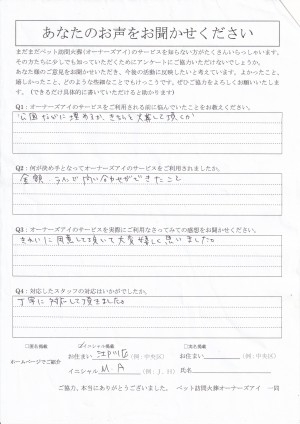 あなたのお声をお聞かせください
まだまだペット訪問火葬(オーナーズアイ)のサービスを知らない方がたくさんいらっしゃいます。
そのたちに少しでも知っていただくためにアンケートにご協力いただけないでしょうか。
あなた様のご意見をお聞かせいただき、今後の活動に反映したいと考えています。よかったこと、
嬉しかったこと、どのような些細なことでもけっこうです。ぜひご協力をよろしくお願いいたしま
す。(できるだけ具体的に書いていただけると助かります)
Q1:オーナーズアイのサービスをご利用される前に悩んでいたことをお教えください。
公園などに埋めるか、きちんと火葬して頂くか
Q2:何が決め手となってオーナーズアイのサービスをご利用されましたか。
金額 すぐに問い合わせができたこと
Q3:オーナーズアイのサービスを実際にご利用なさってみての感想をお聞かせください。
きれいに用意して頂いて大変嬉しく思いました。
Q4:対応したスタッフの対応はいかがでしたか。
丁寧に対応して頂きました。
ホームページでご紹介
□匿名掲載 ☑イニシャル掲載 □実名掲載
お住まい 江戸川区 (例:中央区) お住まい (例:中央区)
イニシャル M A (例:J.H) 氏名
ご協力、本当にありがとうございました。 ペット訪問火葬オーナーズアイ 一同